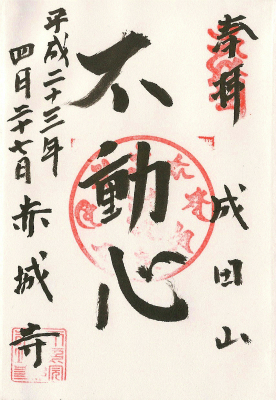 奉拝
成田山
不動心
平成二十三年
四月二十七日
赤城寺